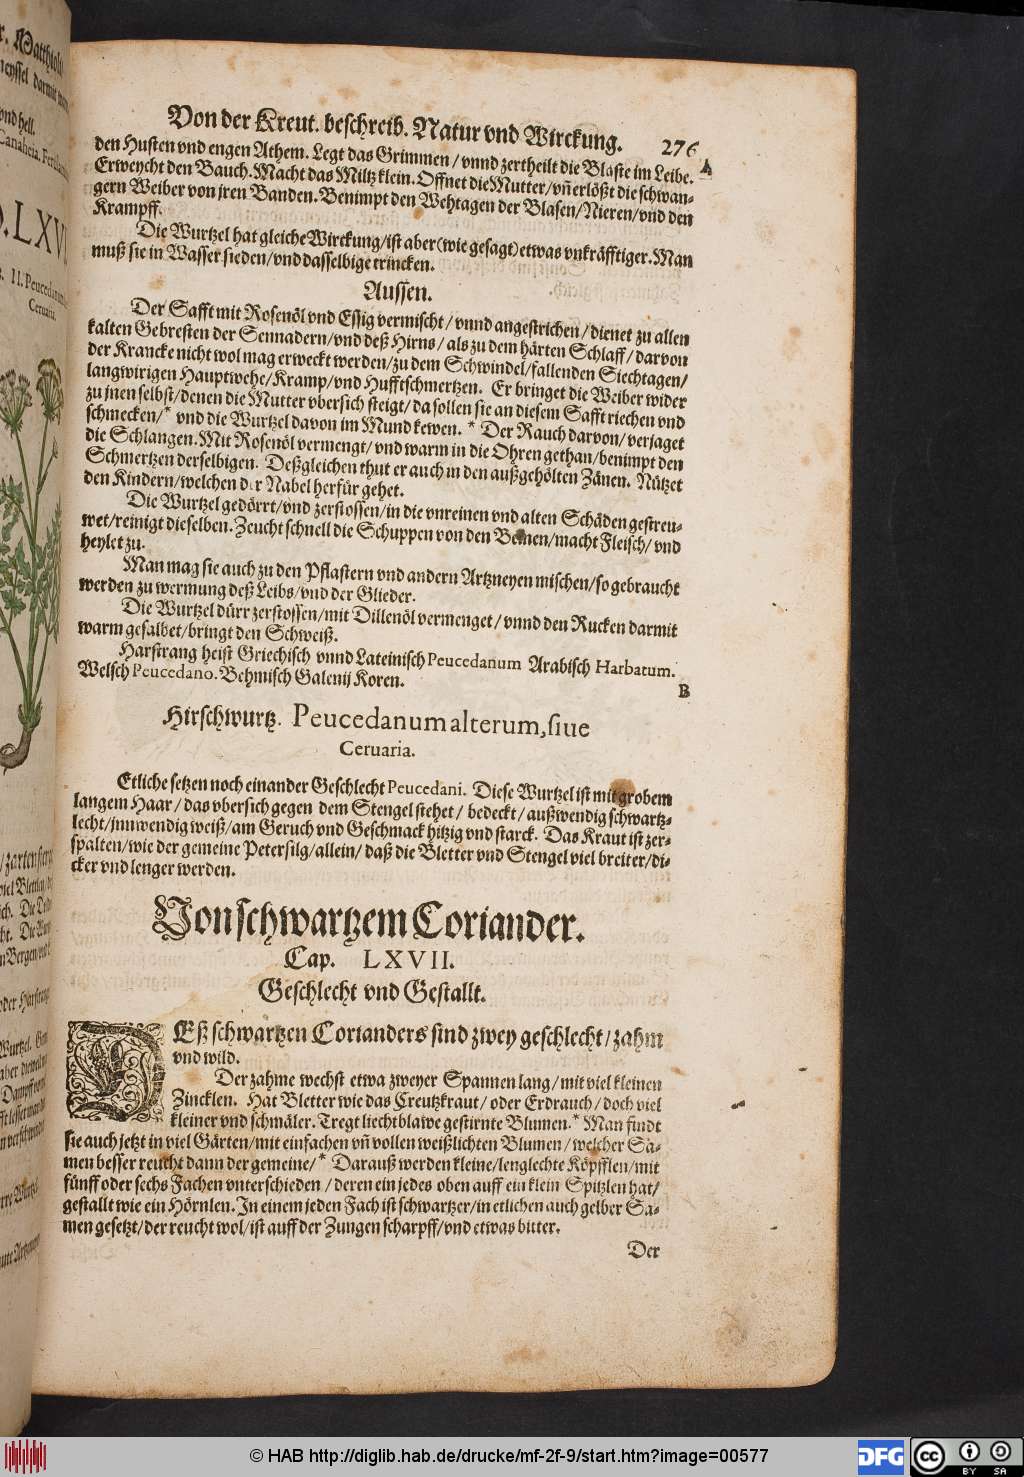 Von der Kreut. beschreib. Natur vnd Wirckung. 276
den Husten vnd engen Athem. Legt das Grimmen / vnnd zertheilt die Bläste im Leibe. A
Erweycht den Bauch. Macht das Miltz klein. Offnet die Mutter/ vñ erlößt die schwan-
gern Weiber von jren Banden. Benimpt den Wehtagen der Blasen/ Nieren/ vnd den
Krampff.
Die Wurtzel hat gleiche Wirckung/ ist aber (wie gesagt) etwas vnkräfftiger. Man
muß sie in Wasser sieden/ vnd dasselbige trincken.
Aussen.
Der Safft mit Rosenöl vnd Essig vermischt / vnnd angestrichen / dienet zu allen
kalten Gebresten der Sennadern/ vnd deß Hirns / als zu dem härten Schlaff / darvon
der Krancke nicht wol mag erweckt werden/ zu dem Schwindel/ fallenden Siechtagen/
langwirigen Hauptwehe/ Kramp/ vnd Hufftschmertzen. Er bringet die Weiber wider
zu jnen selbst/ denen die Mutter vbersich steigt/ da sollen sie an diesem Safft riechen vnd
schmecken/* vnd die Wurtzel davon im Mund kewen. * Der Rauch darvon/ verjaget
die Schlangen. Mit Rosenöl vermengt/ vnd warm in die Ohren gethan/ benimpt den
Schmertzen derselbigen. Deßgleichen thut er auch in den außgehölten Zänen. Nützet
den Kindern/ welchen der Nabel herfür gehet.
Die Wurtzel gedörrt/ vnd zerstossen/ in die vnreinen vnd alten Schäden gestreu-
wet/ reinigt dieselben. Zeucht schnell die Schuppen von den Beinen/ macht Fleisch/ vnd
heylet zu.
Man mag sie auch zu den Pflastern vnd andern Artzneyen mischen/ so gebraucht
werden zu wermung deß Leibs/ vnd der Glieder.
Die Wurtzel dürr zerstossen/ mit Dillenöl vermenget / vnnd den Rucken darmit
warm gesalbet/ bringt den Schweiß.
Harstrang heist Griechisch vnnd Lateinisch Peucedanum Arabisch Harbatum.
Welsch Peucedano. Behmisch Galenij Koren. B
Hirschwurtz. Peucedanum alterum, siue
Ceruaria.
Etliche setzen noch ein ander Geschlecht Peucedani. Diese Wurtzel ist mit grobem
langem Haar / das vbersich gegen dem Stengel stehet / bedeckt / außwendig schwartz-
lecht/ jnnwendig weiß/ am Geruch vnd Geschmack hitzig vnd starck. Das Kraut ist zer-
spalten/ wie der gemeine Petersilg/ allein/ daß die Bletter vnd Stengel viel breiter/ di-
cker vnd lenger werden.
Von schwartzem Coriander.
Cap. LXVII.
Geschlecht vnd Gestallt.
DEß schwartzen Corianders sind zwey geschlecht/ zahm
vnd wild.
Der zahme wechst etwa zweyer Spannen lang/ mit viel kleinen
Zincklen. Hat Bletter wie das Creutzkraut/ oder Erdrauch/ doch viel
kleiner vnd schmäler. Tregt liechtblawe gestirnte Blumen. * Man findt
sie auch jetzt in viel Gärten/ mit einfachen vñ vollen weißlichten Blumen/ welcher Sa-
men besser reucht dann der gemeine/* Darauß werden kleine/ lenglechte Köpfflen/ mit
fünff oder sechs Fachen vnterschieden / deren ein jedes oben auff ein klein Spitzlen hat/
gestallt wie ein Hörnlen. In einem jeden Fach ist schwartzer/ in etlichen auch gelber Sa-
men gesetzt/ der reucht wol/ ist auff der Zungen scharpff/ vnd etwas bitter.
Der
© HAB http://diglib.hab.de/drucke/mf-2f-9/start.htm?image=00577
DFG
cc BY SA